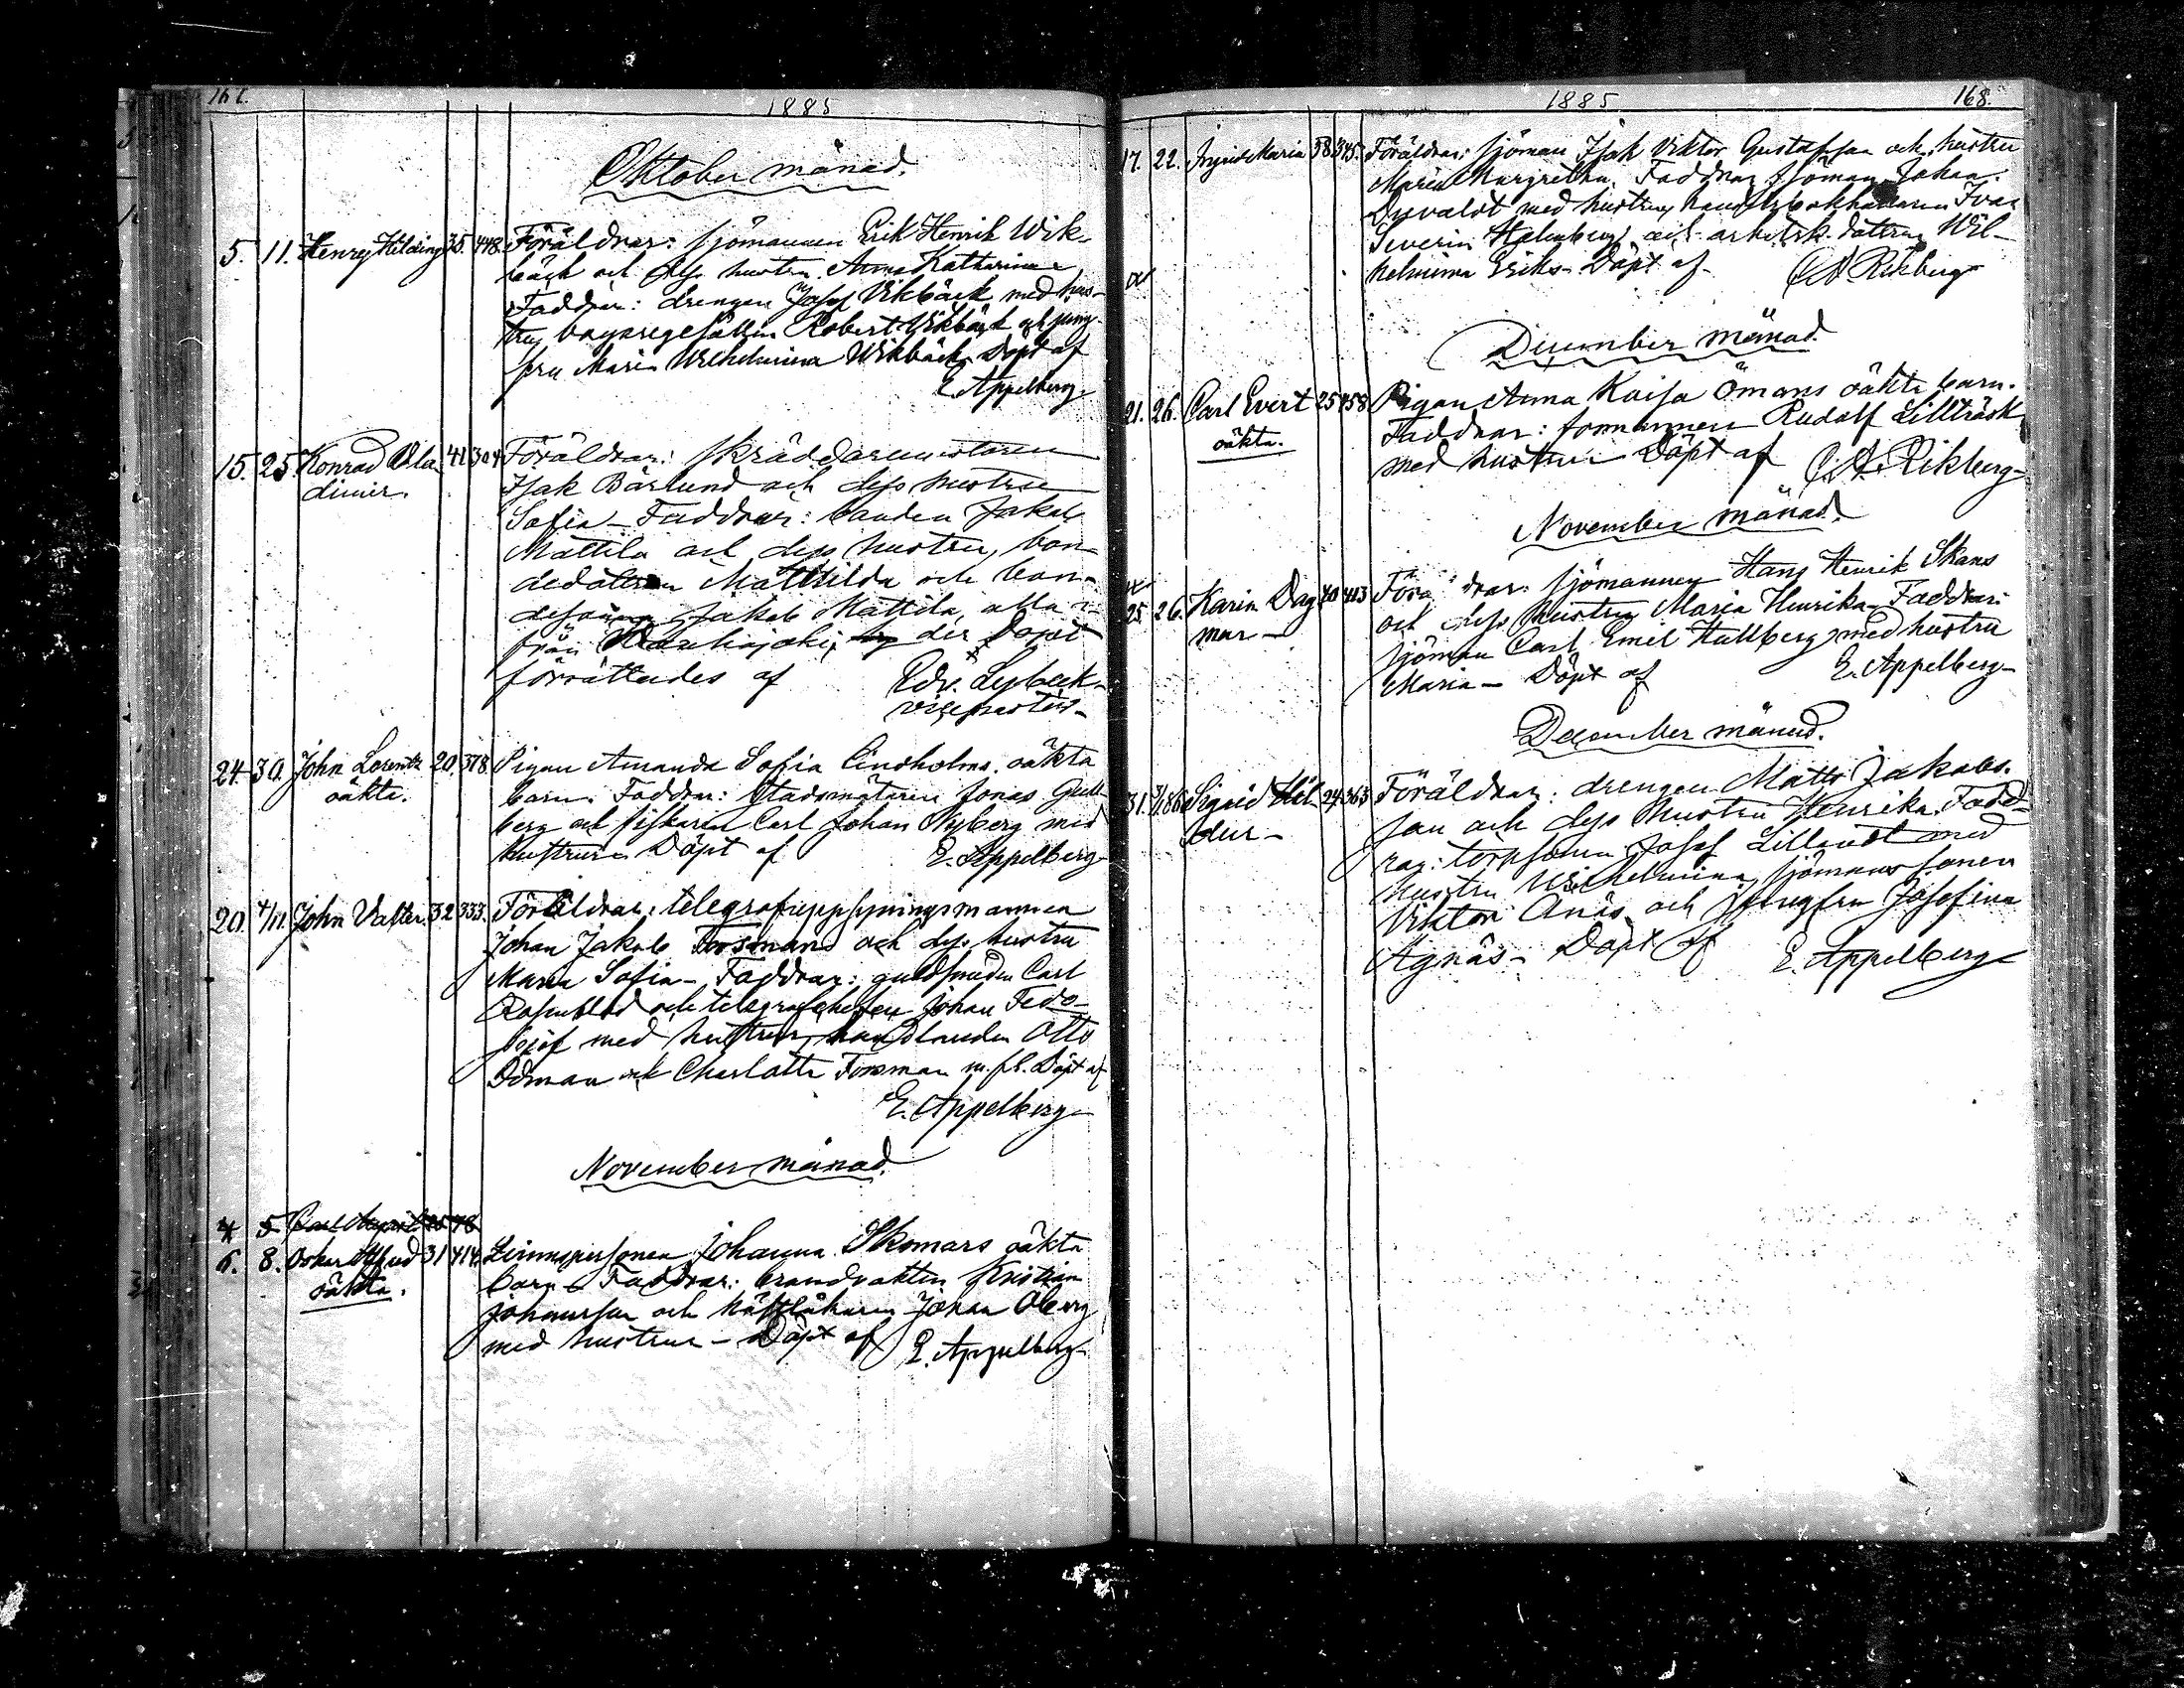 1885
Oktober månad.
5. 11. Henry Hilding 35. 448. Föräldrar: sjömannen Erik Henrik Wik-
bäck och dess hustru Anna Katharina
Faddrar: drengen Josef Vikbäck med hus-
tru, bagaregesällen Robert Vikbäck och jung-
fru Maria Wilhelmina Wikbäck. Döpt af
E. Appelberg
15. 25. Konrad Vla- 41 304 Föräldrar: skräddaremästaren
dimir. Isak Bärlund och dess hustru
Sofia – Faddrar: bonden Jakob
Mattila och dess hustru, bon-
dedottren Mathilda och bon-
desonen Jakob Mattila, alla i-
från der döpet
förrättades af Edv. Lybeck
vicepastor
24. 30. John Lorentz 20. 378. Pigan Amanda Sofia Lindholms oäkta
oäkta. barn. Faddrar: stadsmätaren Jonas Gull-
berg och fiskaren Carl Johan Nyberg med
hustrur. Döpt af E. Appelberg
20. 4/11. John Valter. 32. 333. Föräldrar: telegrafuppsyningsmannen
Johan Jakob Forsman och dess hustru
Maria Sofia – Faddrar: guldsmeden Carl
Rosenblad och telegrafchefen Johan Fedo-
med hustrur, handlanden Otto
Ödman och Charlotta Forsman m.fl. Döpt af
E. Appelberg
November månad.
4 5 Carl 25 48
6. 8. Oskar Alfred 31 414. Johanna Skomars oäkta
oäkta. barn – Faddrar: brandvakten Kristian
Johansson och Johan Åberg
med hustrur – Döpt af E. Appelberg
1885 168.
17. 22. Ingrid Maria 38 345. Föräldrar: sjöman Isak Viktor Gustafsson och hustru
Maria Margretha. Faddrar sjöman Johan
med hustru, handelsbokhållaren Ivar
Severin Holmberg och arbetsk. dottern Wil-
helmina Eriks – Döpt af C. A. Rikberg
December månad.
21. 26. Carl Evert 25 458 Pigan Anna Kaisa Ömans oäkta barn.
oäkta. Faddrar: formannen Rudolf Lillträsk
med hustru Döpt af C. A. Rikberg
November månad.
25 26. Karin Dag- 40 413 Föräldrar: sjömannen Hans Henrik Skans
mar – och dess hustru Maria Henrika – Faddrar:
sjöman Carl Emil Hallberg med hustru
Maria – Döpt af E. Appelberg
December månad.
31. 3/1 86 Sigrid Hil- 24 363 Föräldrar: drengen Matts Jakobs-
dur – son och dess hustru Henrika. Fadd-
rar: torpsonen Josef Lillqvist med
hustru Wilhelmina, sjömanssonen
Viktor Anäs och jungfru Josefina
Agnäs – Döpt af E. Appelberg